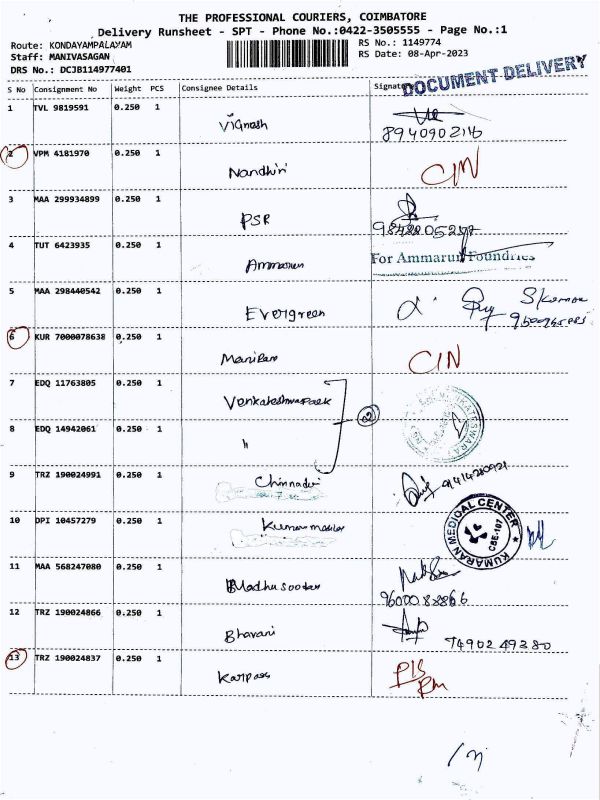 THE PROFESSIONAL COURIERS, COIMBATORE
Delivery Runsheet - SPT - Phone No.:0422-3505555 - Page No.:1
Route: KONDAYAMPALAYAM
RS No.: 1149774
Staff: MANIVASAGAN
RS Date: 08-Apr-2023
DRS No.: DCJB114977401
DOCUMENT DELIVERY
S No Consignment No Weight PCS Consignee Details Signature
1 TVL 9819591 0.250 1 Vignesh
8940902216
2 VPM 4181970 0.250 1 Nandhini CIN
3 MAA 299934899 0.250 1 PSR
4 TUT 6423935 0.250 1 Ammarun For Ammarun Foundries
5 MAA 298440542 0.250 1 Evergreen
6 KUR 7000078638 0.250 1 Maniram CIN
7 EDQ 11763805 0.250 1 Venkateshwara
8 EDQ 14942061 0.250 1 "
9 TRZ 190024991 0.250 1 Chinnadvi
10 DPI 10457279 0.250 1 KUMARAN MEDICAL CENTER
CBE-107
11 MAA 568247080 0.250 1 Madhusoodan
12 TRZ 190024866 0.250 1 Bhavani
7490249380
13 TRZ 190024837 0.250 1 Karpass